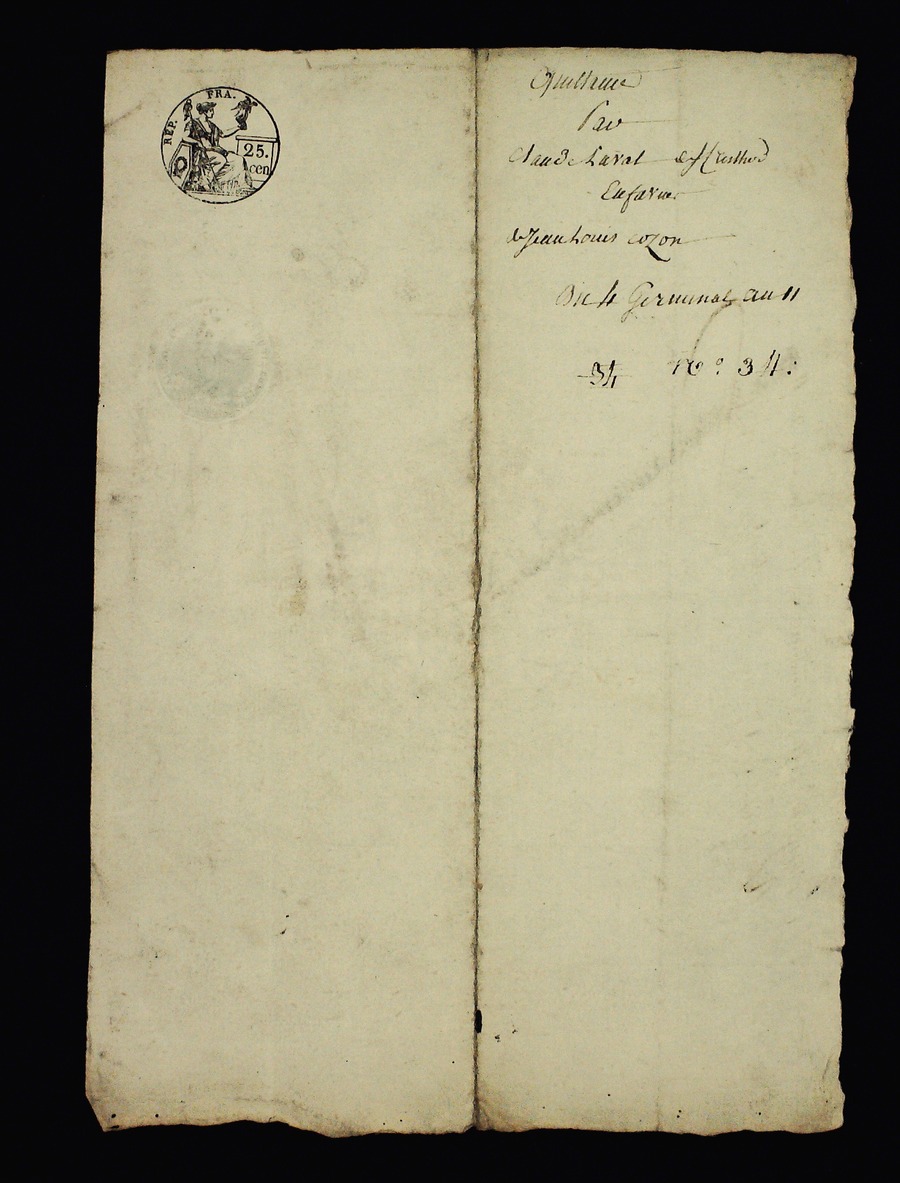 REP. FRA.
25.
cen
Quittance
Par
Claude Laval
En faveur
de Jean Louis cozon
Du 4 Germinal an 11
34 N.º 34: